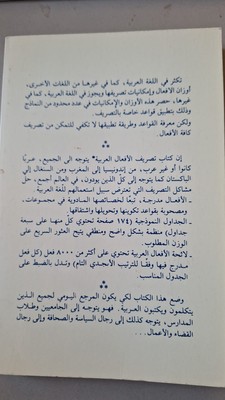 تكثر في اللغة العربية، كما في غيرها من اللغات الأخرى،
أوزان الأفعال وإمكانيات تصريفها ويجوز في اللغة العربية، كما في
غيرها، حصر هذه الأوزان والإمكانيات في عدد محدود من النماذج
وذلك بتطبيق قواعد خاصة بالتصريف.
ولكن معرفة القواعد وطريقة تطبيقها لا تكفي للتمكن من تصريف
كافة الأفعال.
إن كتاب تصريف الأفعال العربية* يتوجه الى الجميع، عربًا
كانوا أو غير عرب، من إندونيسيا إلى المغرب ومن السنغال إلي
الباكستان كما يتوجه إلى كل الذين يودون، في العالم أجمع، حل
مشاكل التصريف التي تعترض سبيل استعمالهم للغة العربية
ـ الأفعال مدرجة، تبعًا لخصائصها المتوازية في مجموعات،
ومصحوبة بقواعد تكوينها وتحويلها واشتقاقها.
ـ الجداول النموذجية (١٧٤ صفحة تحتوي كل منها على سبعة
جداول) منظمة بشكل واضح ومنطقي يتيح العثور السريع على
الوزن المطلوب.
ـ لائحة الأفعال العربية تحتوي على أكثر من ٨٠٠٠ فعل (كل فعل
مدرج فيها وفقًا للترتيب الأبجدي التام) وتدل بالضبط على
الجدول المناسب.
وضع هذا الكتاب لكي يكون المرجع اليومي لجميع الذين
يتكلمون ويكتبون العربية. فهو يتوجه إلى الجامعيين وطلاب
المدارس، يتوجه كذلك إلى رجال السياسة والصحافة وإلى رجال
القضاء والأعمال...